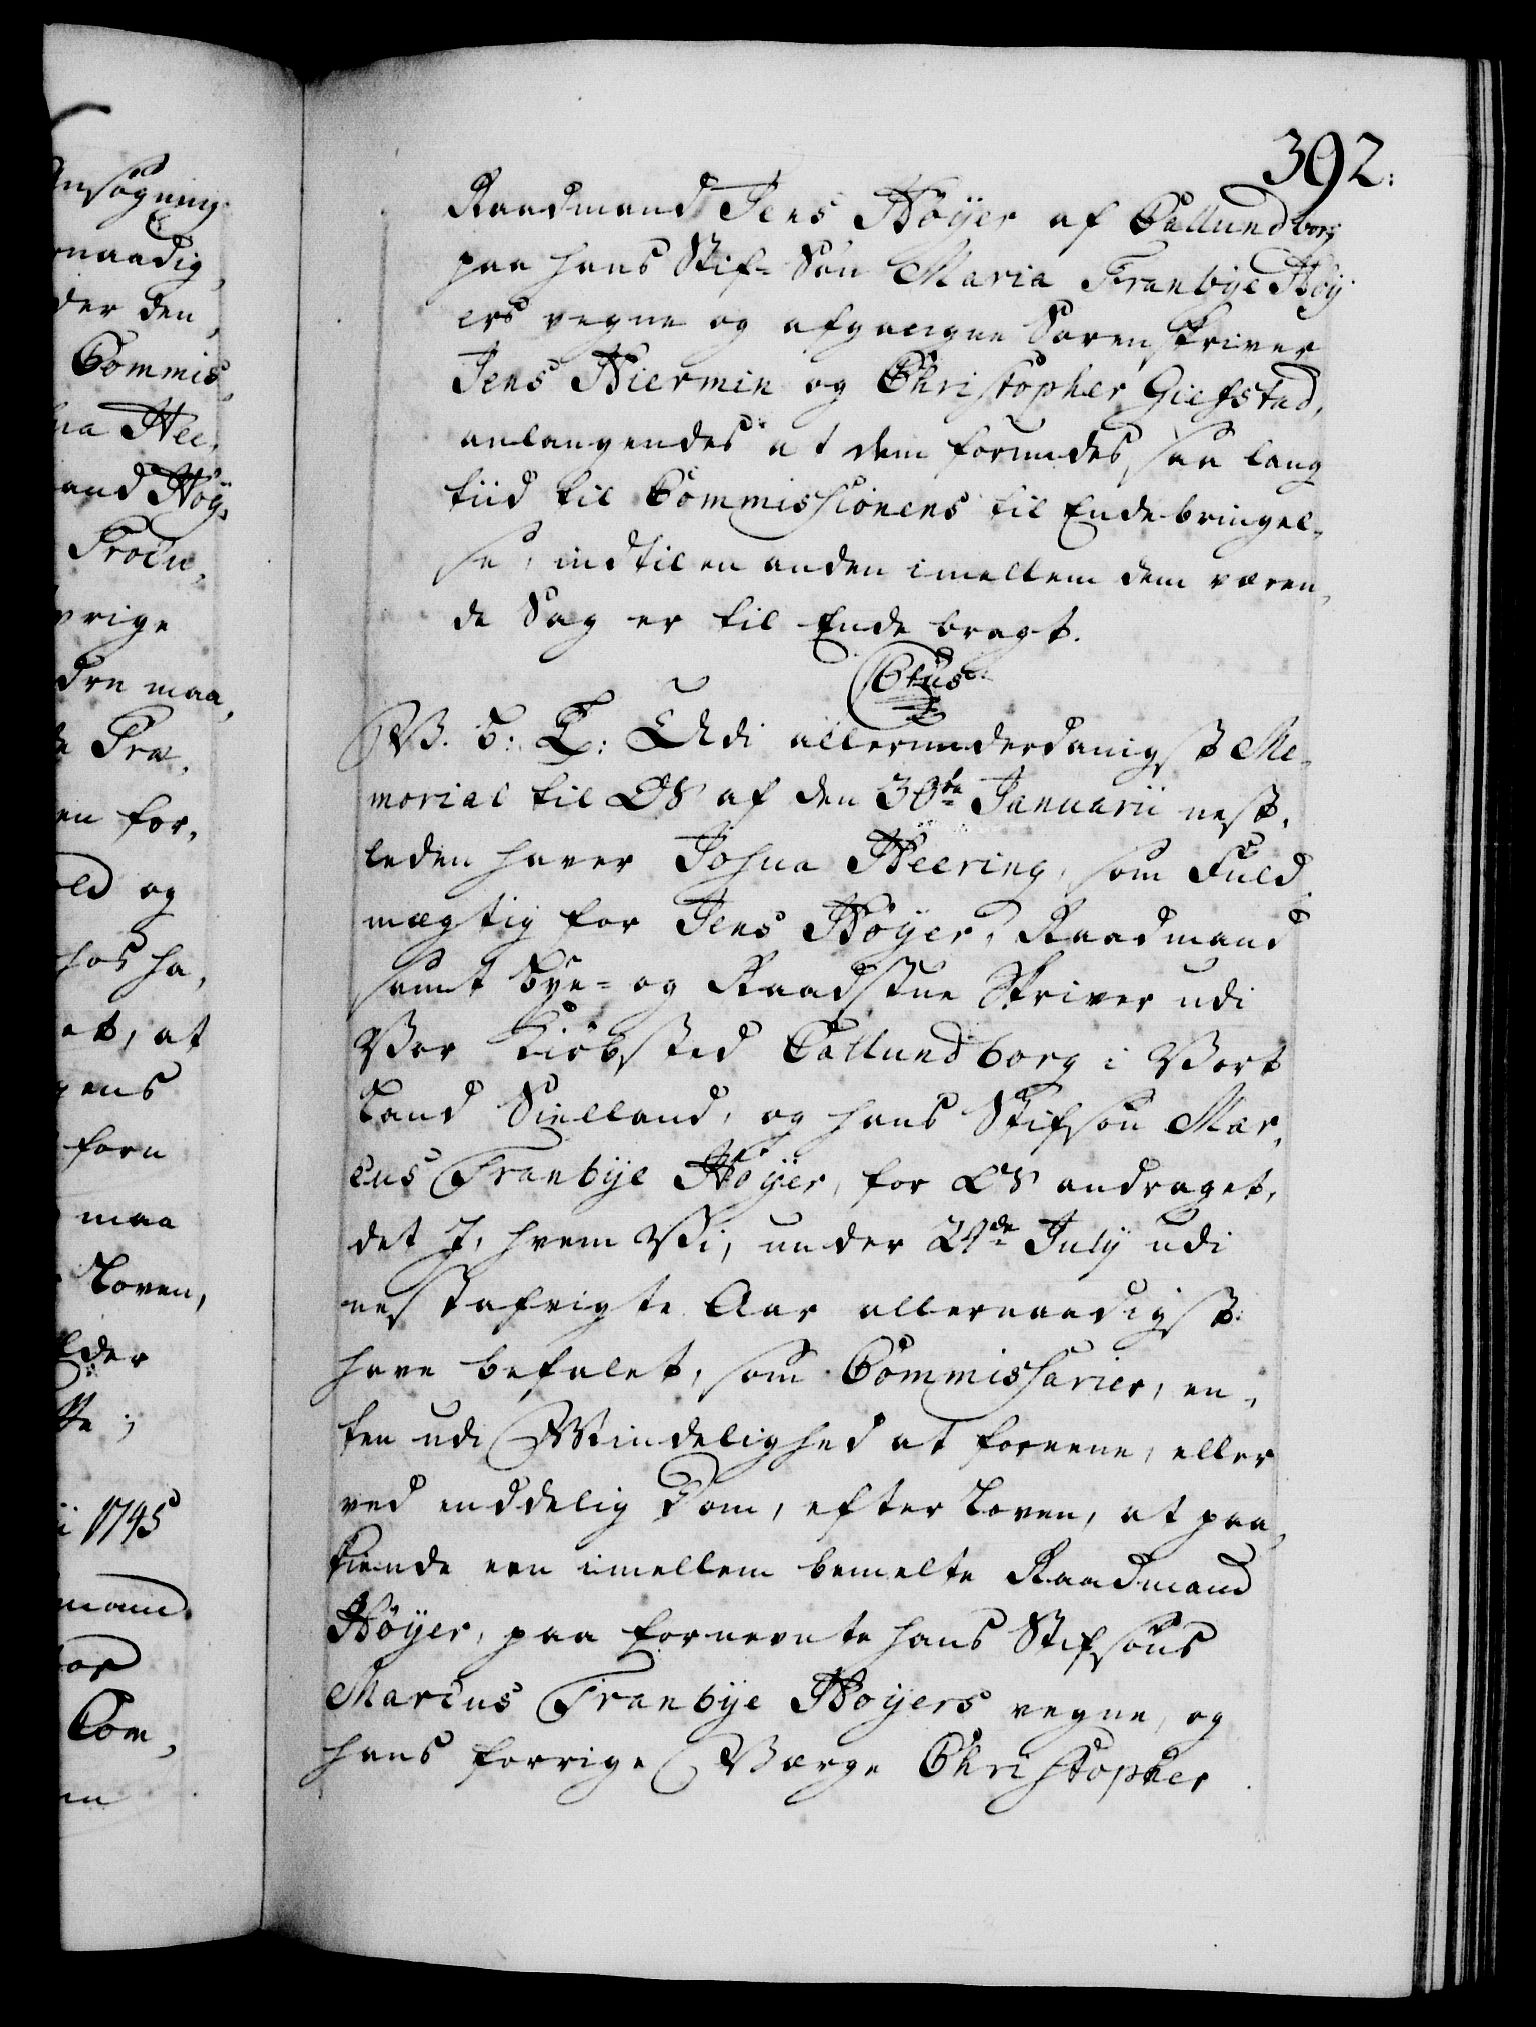 392.
Raadmand Jens Höÿer af Callundborg
paa hans Stif-Søn Maria Tranbÿe Höÿ
ers vegne og afgangne Sorenskriver
Jens Hiermin og Christopher Giefstad,
anlangendes at dem forundes, saa lang
tiid til Commissionens til Ende bringel-
se, indtil en anden imellem dem væren,
de Sag er til Ende bragt.
C6tus
V. G. T: Udi allerunderdanigst Me-
morial til OS af den 30te Januarii nest,
leden haver Johua Heering, som Fuld
mægtig for Jens Höÿer, Raadmand
samt Bÿe- og Raadstue Skriver udi
Vor Kiöbsted Callundborg i Vort
Land Siælland, og hans Stifsön Mar,
cus Tranbÿe Höÿer, for OS andraget,
det J, hvem Vi, under 24de Julÿ udi
nestafvigte Aar allernaadigst
have befalet, som Commissarier, en,
ten udi Mindelighed at foreene, eller
ved endelig Dom, efter Loven, at paa,
kiende een imellem bemelte Raadmand
Höÿer, paa fornevnte hans Stifsöns
Marcus Tranbÿe Höÿers vegne, og
hans forrige Værge Christopher
Ansøgning
naadig,
der den
Commis,
na Hee,
and Höÿ,
Procu,
vrige
dre maa,
Præ,
en for,
old og
hos ha,
et, at
gens
forn
maa
Loven,
lder
1745
mand
for
Com,